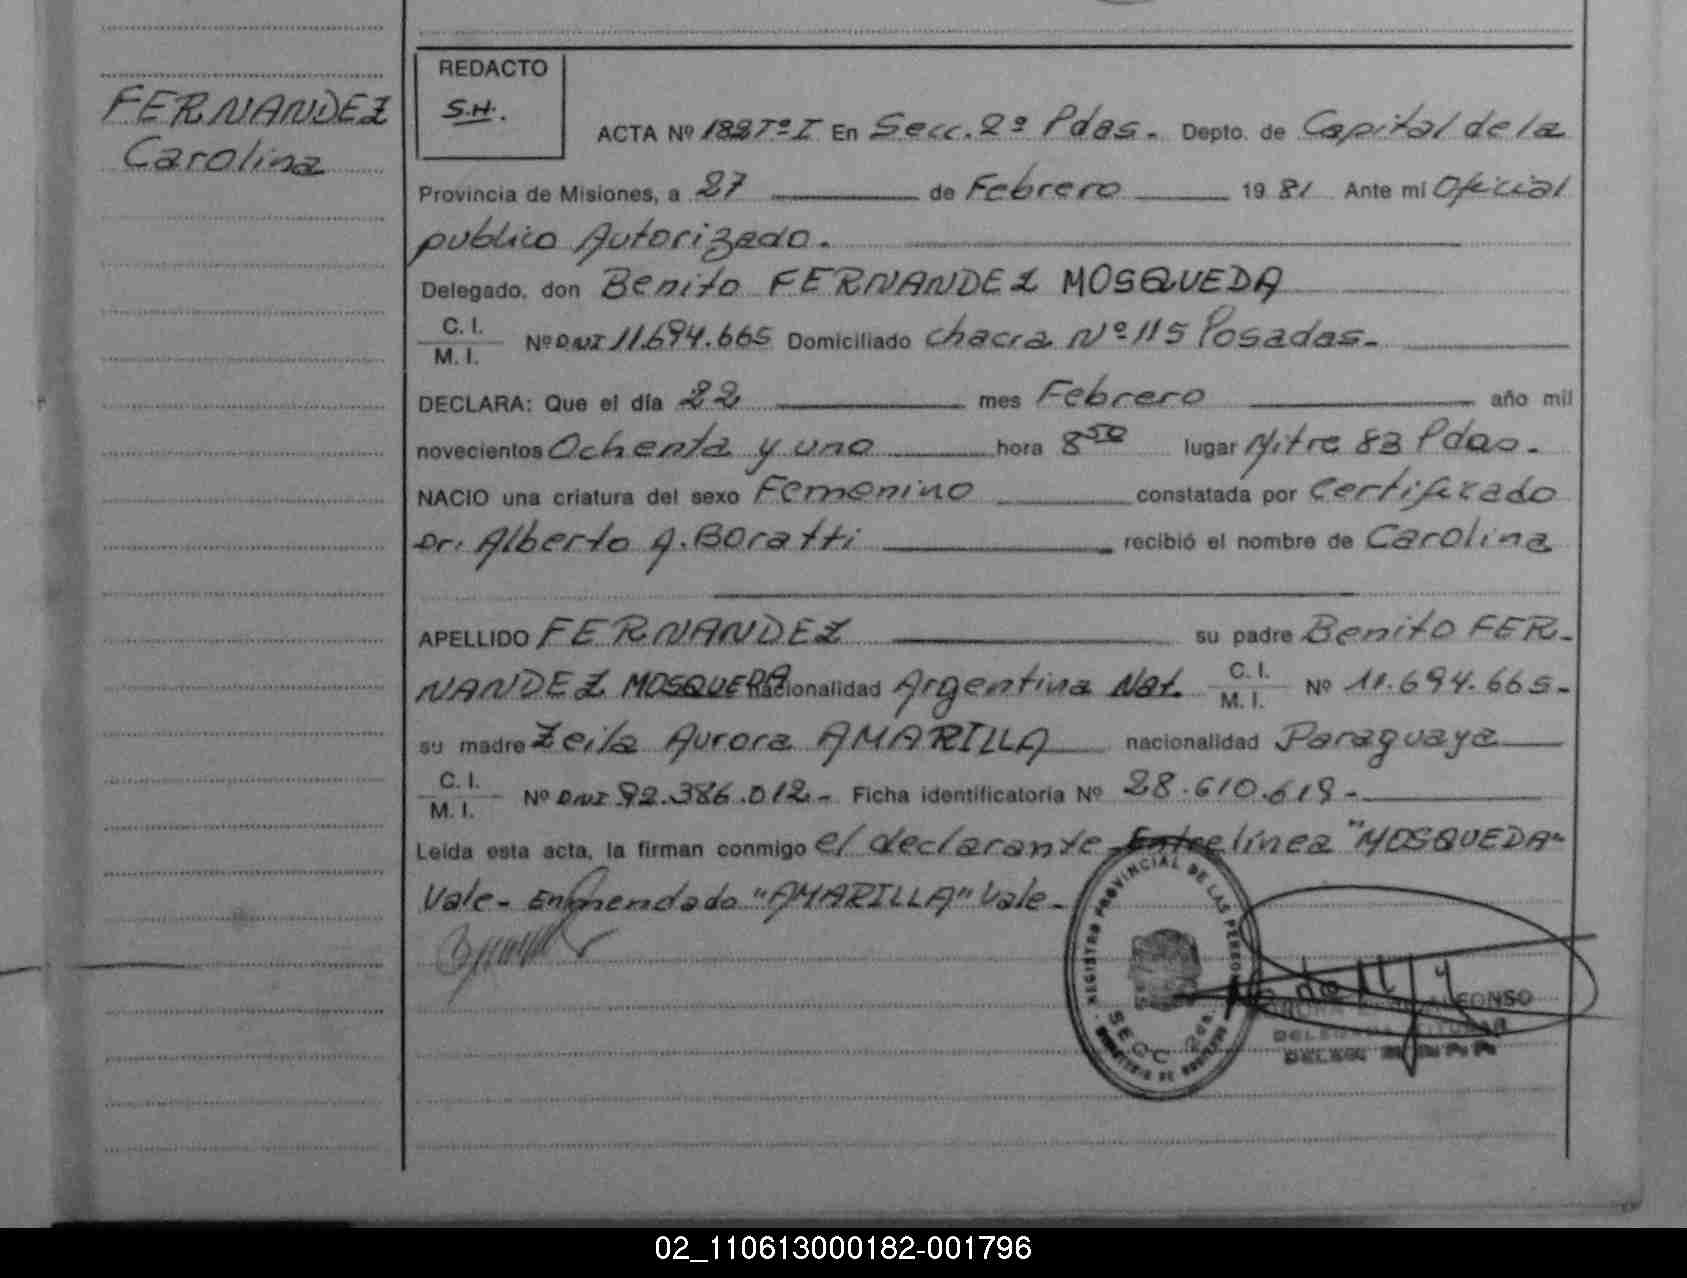 FERNANDEZ
Carolina
REDACTO
S.H.
ACTA Nº 182 Tº I En Secc. 2º Pdas. Depto. de Capital de la
Provincia de Misiones, a 27 de Febrero 19 81 Ante mi Oficial
publico Autorizado.
Delegado, don Benito FERNANDEZ MOSQUEDA
C. I.
M. I. Nº DNI 11.694.665 Domiciliado chacra Nº 115 Posadas.
DECLARA: Que el día 22 mes Febrero año mil
novecientos Ochenta y uno hora 8 50 lugar Mitre 83 Pdas.
NACIO una criatura del sexo Femenino constatada por Certificado
Dr. Alberto A. Boratti recibió el nombre de Carolina
APELLIDO FERNANDEZ su padre Benito FER-
NANDEZ MOSQUEDA nacionalidad Argentina Nat. C. I.
M. I. Nº 11.694.665-
su madre Zeila Aurora AMARILLA nacionalidad Paraguaya
C. I.
M. I. Nº DNI 92.386.012- Ficha identificatoria Nº 28.610.619-
Leida esta acta, la firman conmigo el declarante Entrelínea "MOSQUEDA"
Vale- Enmendado "AMARILLA" Vale-
REGISTRO PROVINCIAL DE LAS PERSONAS
SECC. 2da.
02_110613000182-001796